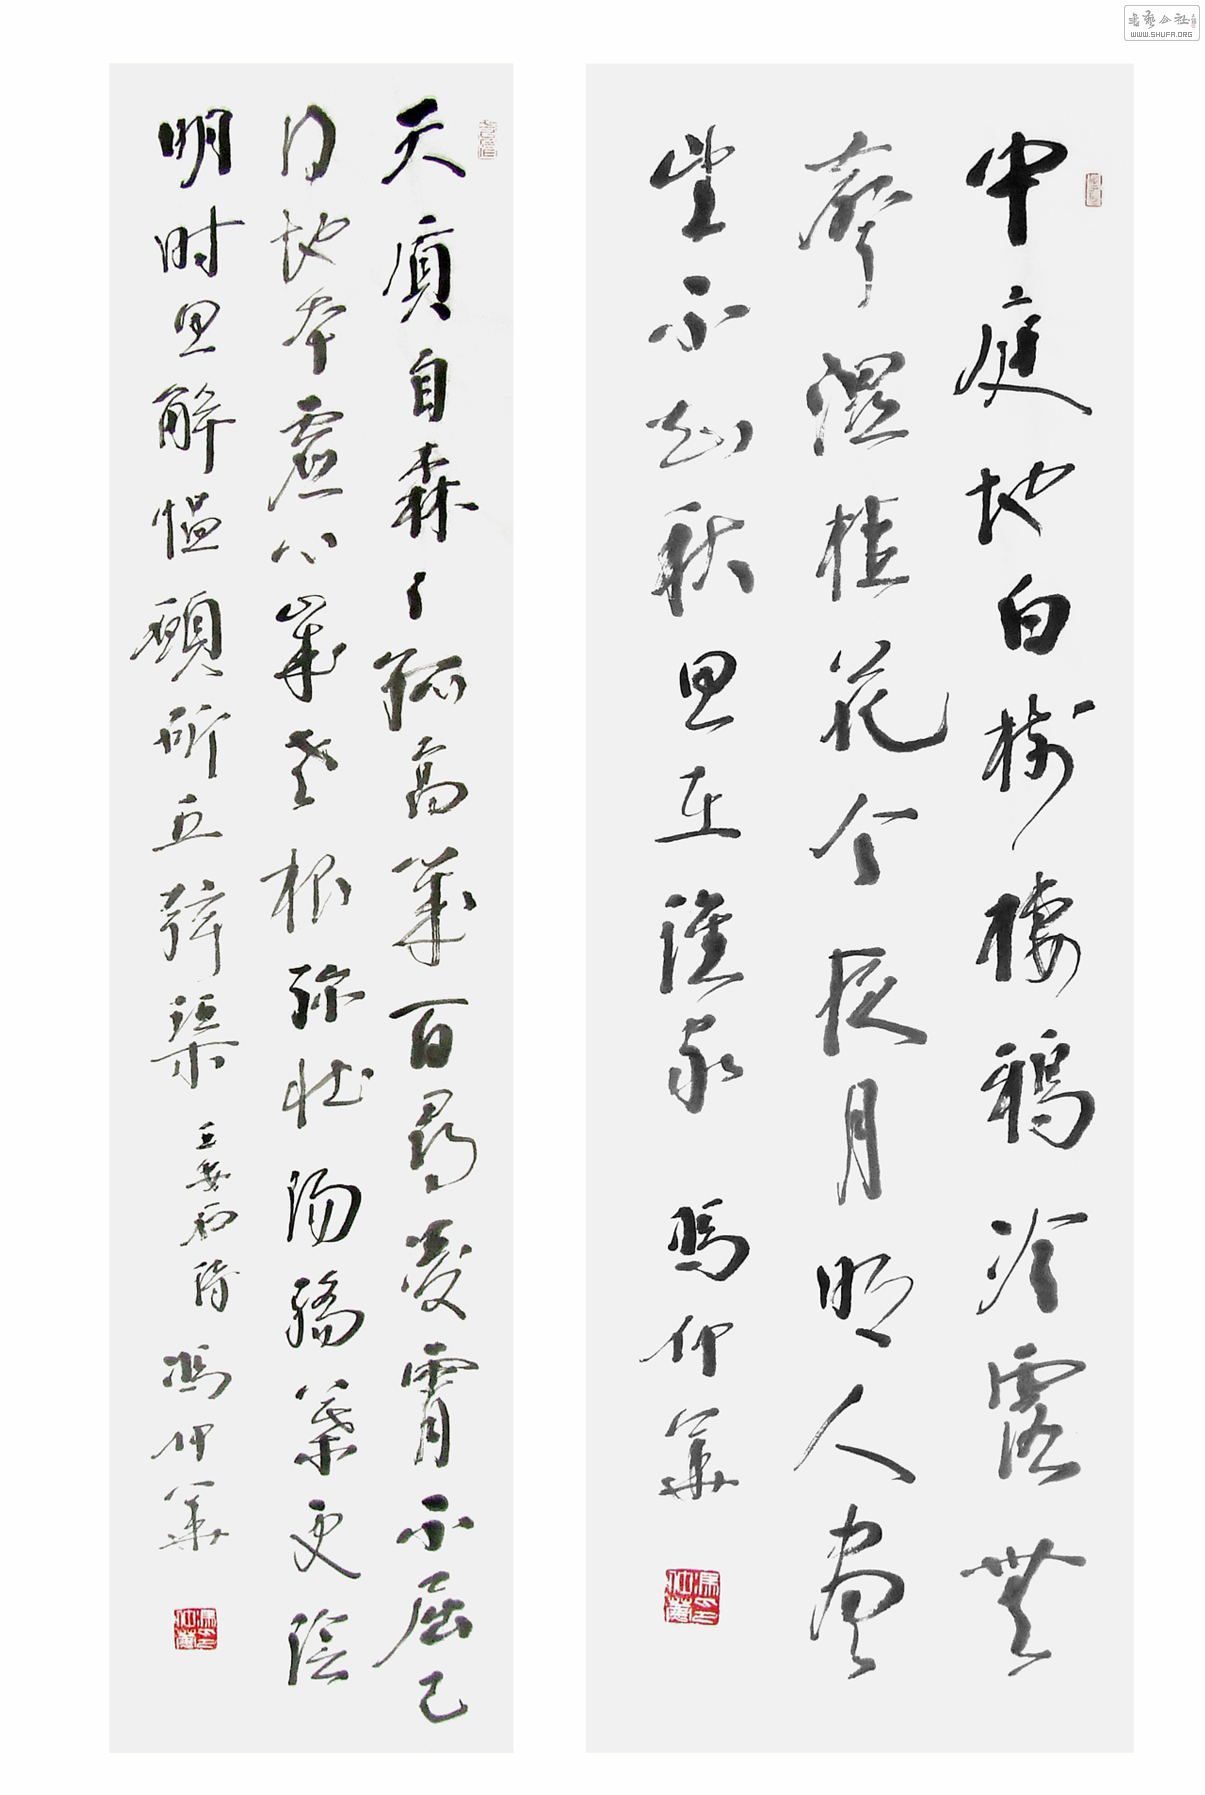 中庭地白樹棲鴉冷露無
聲濕桂花今夜月明人盡
望不知秋思在誰家
馮仲華
天質自森々孤高幾百尋凌霄不屈己
得地本虛心歲老根弥壯陽驕葉更陰
明时思解愠願斫五弦琴
王安石詩 馮仲華
WWW.SHUFA.ORG